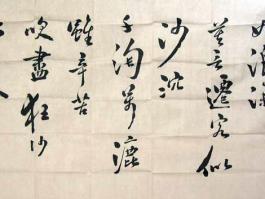 如浪深
莫言遷客似
沙沈
千淘萬漉
雖辛苦
吹盡狂沙